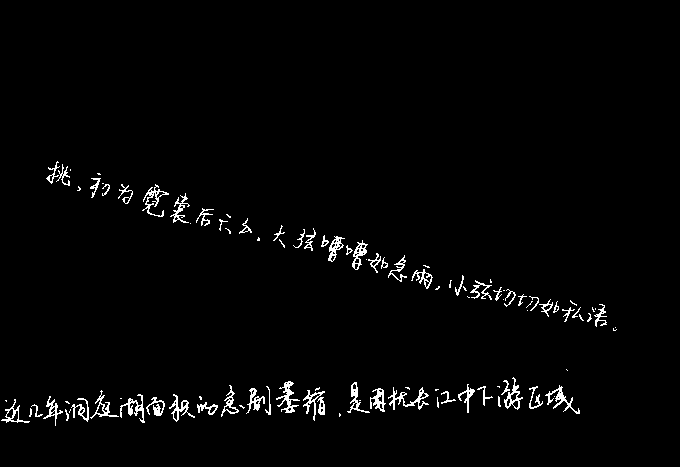 挑，初为霓裳后六么。大弦嘈嘈如急雨，小弦切切如私语。
近几年洞庭湖面积的急剧萎缩，是困扰长江中下游区域